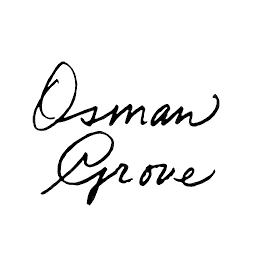 Osman
Grove